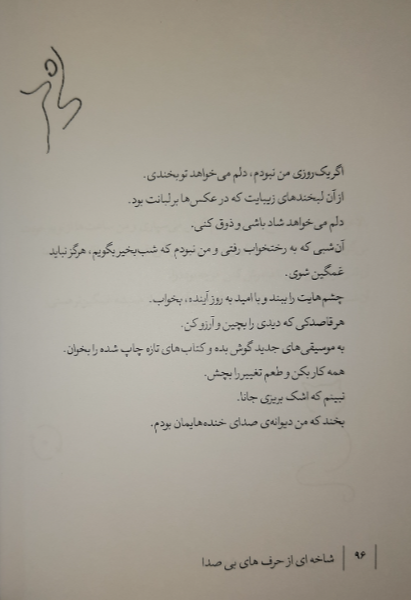 اگر یک روزی من نبودم، دلم می‌خواهد تو بخندی.
از آن لبخندهای زیبایت که در عکس‌ها بر لبانت بود.
دلم می‌خواهد شاد باشی و ذوق کنی.
آن شبی که به رختخواب رفتی و من نبودم که شب‌بخیر بگویم، هرگز نباید
غمگین شوی.
چشم‌هایت را ببند و با امید به روز آینده، بخواب.
هر قاصدکی که دیدی را بچین و آرزو کن.
به موسیقی‌های جدید گوش بده و کتاب‌های تازه چاپ شده را بخوان.
همه کار بکن و طعم تغییر را بچش.
نبینم که اشک بریزی جانا.
بخند که من دیوانه‌ی صدای خنده‌هایمان بودم.
۹۶ | شاخه ای از حرف های بی صدا